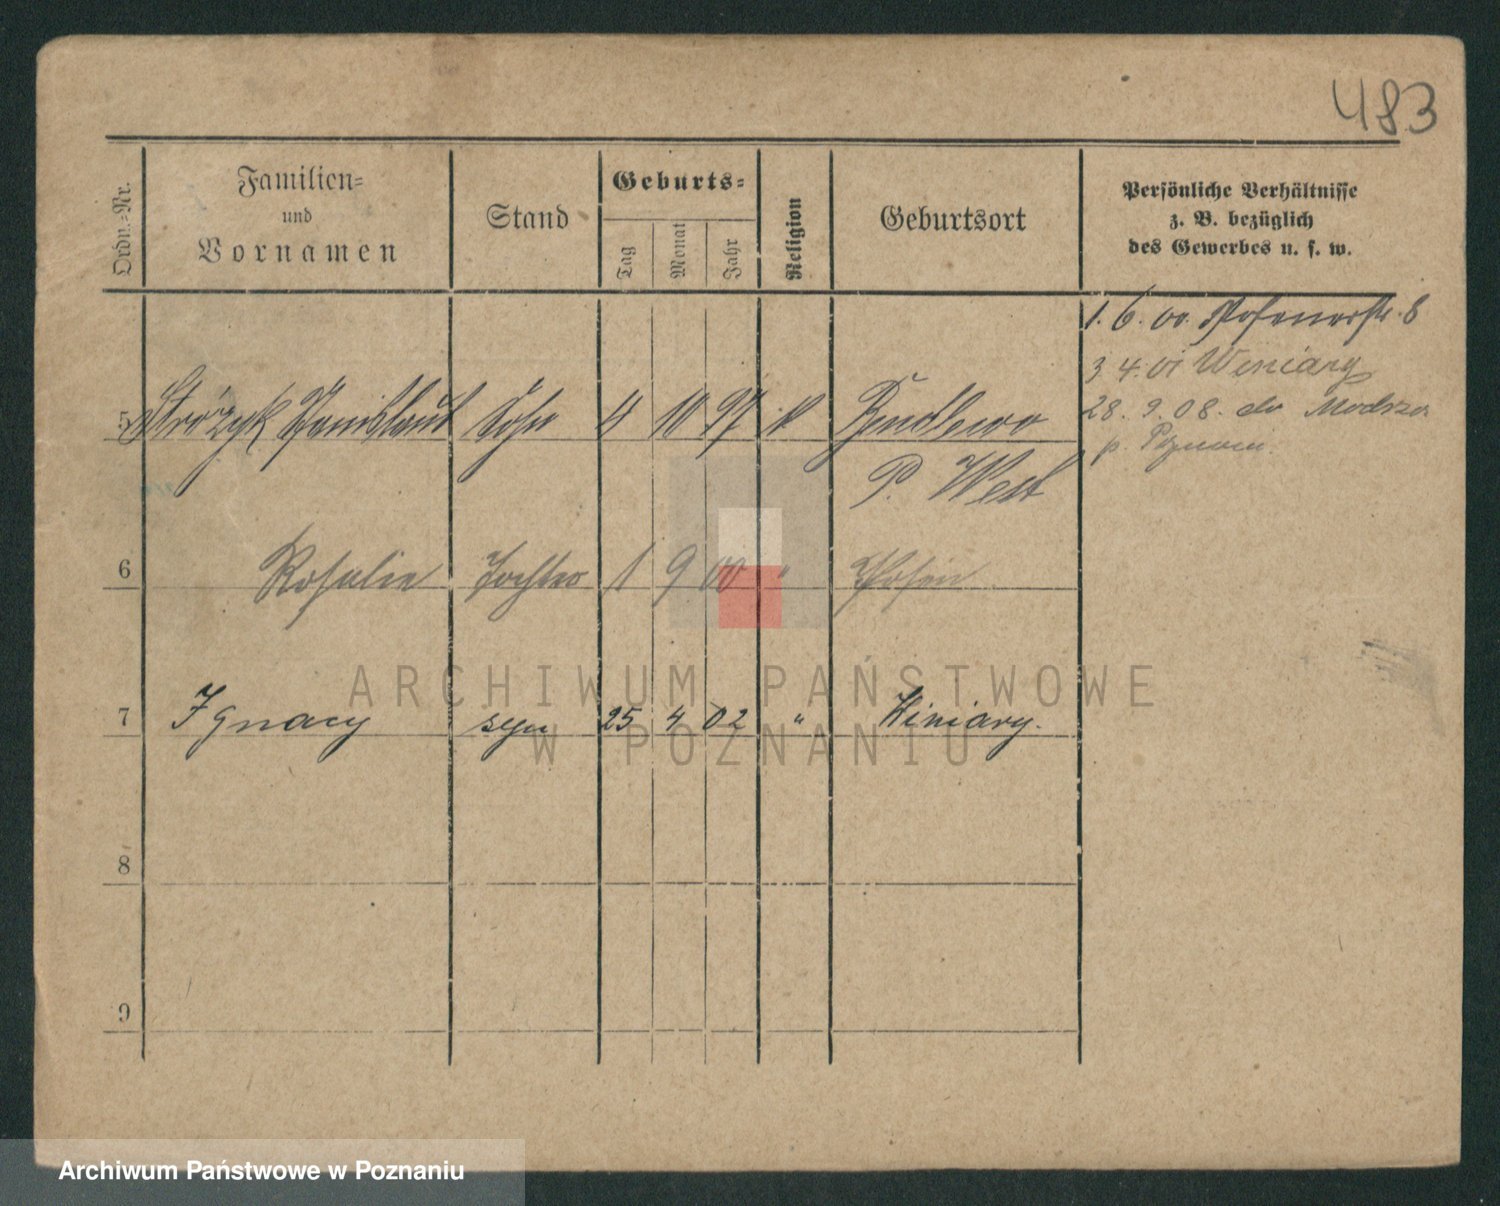 483
Ordn.-Nr.
Familien-
und
Vornamen
Stand
Geburts-
Tag
Monat
Jahr
Religion
Geburtsort
Persönliche Verhältnisse
z. B. bezüglich
des Gewerbes u. s. w.
1. 6. 00. Posenerstr. 8
3. 4. 01 Winiary
28. 9. 08. do
5 Strózyk Stanislaus Sohn 4 10 97 k
P. West
6 Rosalie Tochter 1 9 00 " Posen
7 Ignacy syn 25 4 02 " Winiary.
8
9
ARCHIWUM PAŃSTWOWE
W POZNANIU
Archiwum Państwowe w Poznaniu